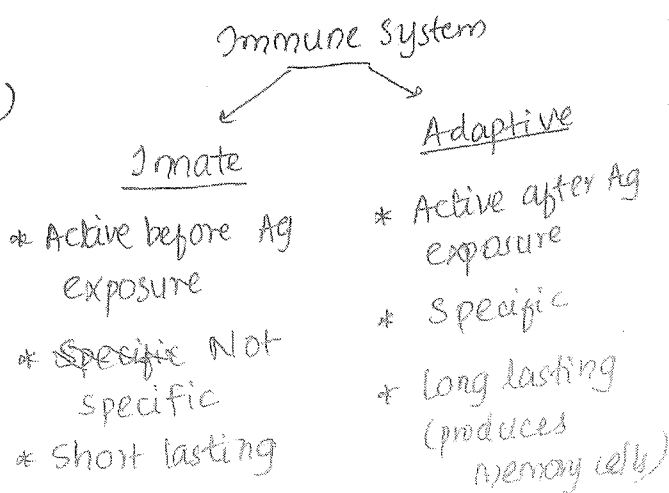 Immune System
)
Innate
* Active before Ag
exposure
* Specific Not
specific
* Short lasting
Adaptive
* Active after Ag
exposure
* Specific
* Long lasting
(produces
Memory cells)